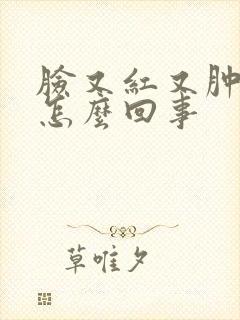 臉又紅又肿
怎麼回事
草唯夕